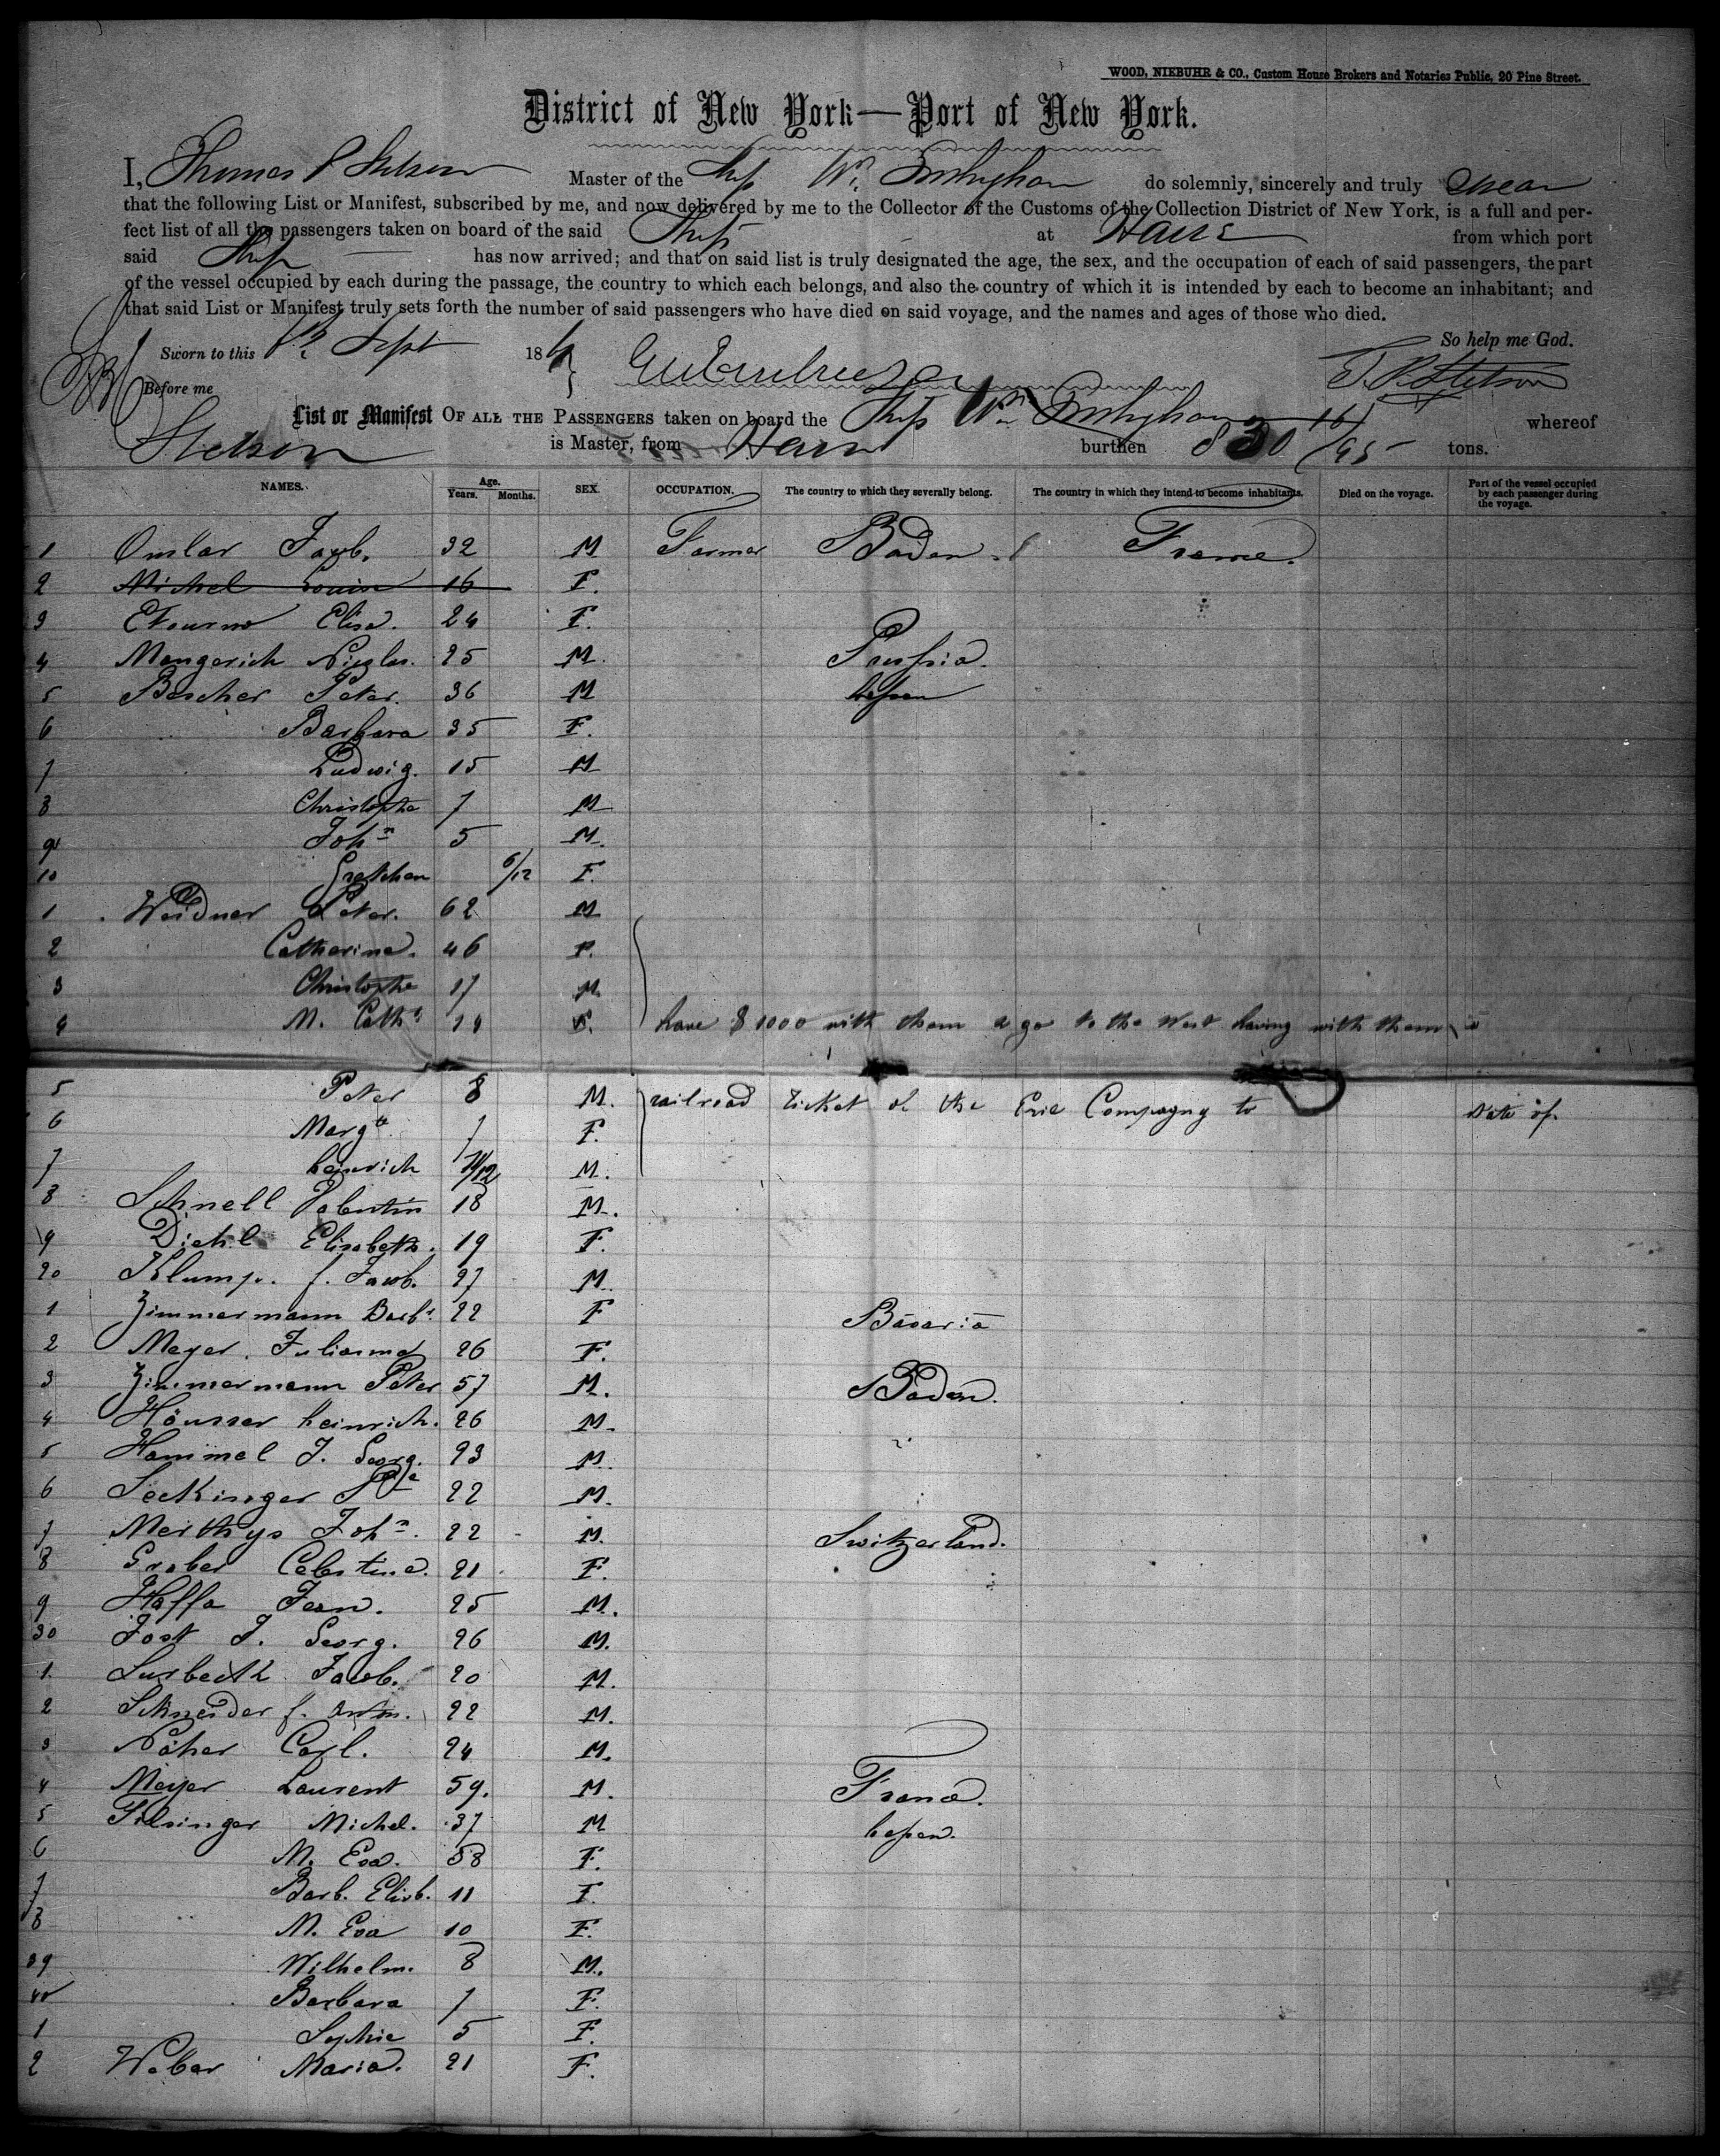 WOOD, NIEBUHR & CO., Custom House Brokers and Notaries Public, 20 Pine Street.
District of New York—Port of New York.
I, Thomas P Stetson Master of the Ship Wm do solemnly, sincerely and truly swear
that the following List or Manifest, subscribed by me, and now delivered by me to the Collector of the Customs of the Collection District of New York, is a full and per-
fect list of all the passengers taken on board of the said Ship at Havre from which port
said Ship has now arrived; and that on said list is truly designated the age, the sex, and the occupation of each of said passengers, the part
of the vessel occupied by each during the passage, the country to which each belongs, and also the country of which it is intended by each to become an inhabitant; and
that said List or Manifest truly sets forth the number of said passengers who have died on said voyage, and the names and ages of those who died.
So help me God.
Sworn to this Sept 186
Before me
List or Manifest OF ALL THE PASSENGERS taken on board the Ship Wm whereof
Stetson is Master, from Havre burthen 830 /95 tons.
NAMES. Age. Years. Months. SEX. OCCUPATION. The country to which they severally belong. The country in which they intend to become inhabitants. Died on the voyage. Part of the vessel occupied by each passenger during the voyage.
1 Jacob. 32 M Farmer Baden France.
2 Michel Louise 16 F.
3 Elise. 24 F.
4 Mengerich Nicolas. 25 M. Prussia.
5 Bescher Peter. 36 M hessen
6 Barbara 35 F.
7 Ludwig. 15 M
8 Christophe 7 M
9 John 5 M.
10 Gretchen 6/12 F.
1 Weidner Peter. 62 M
2 Catharina. 46 F.
3 Christophe 17 M
4 M. Cath. 14 F. have $1000 with them & go to the West having with them a
5 Peter 8 M. railroad ticket of the Erie Compagny to State of
6 Margte 7 F.
7 heinrich 11/12 M.
8 Schnell Valentin 18 M.
9 Diehl Elisabeth. 19 F.
20 Klump. f. Jacob. 27 M.
1 Zimmermann Barb. 22 F Bavaria
2 Meyer. Julianna 26 F.
3 Zimmermann Peter 57 M. Baden.
4 Häusser heinrich. 26 M.
5 Hammel J. Georg. 23 M.
6 Seckinger 22 M.
7 Merthys John. 22 M. Switzerland.
8 Graber Celestina. 21 F.
9 Haffa Jean. 25 M.
30 Jost J. Georg. 26 M.
1 Jacob. 20 M.
2 Schneider f. Anton. 22 M.
3 Näher Carl. 24 M.
4 Meyer Laurent 59. M. France.
5 Filsinger Michel. 37 M hessen.
6 M. Eva. 38 F.
7 Barb. Elisb. 11 F.
8 M. Eva 10 F.
39 Wilhelm. 8 M.
40 Barbara 7 F.
1 Sophie 5 F.
2 Weber Maria. 21 F.